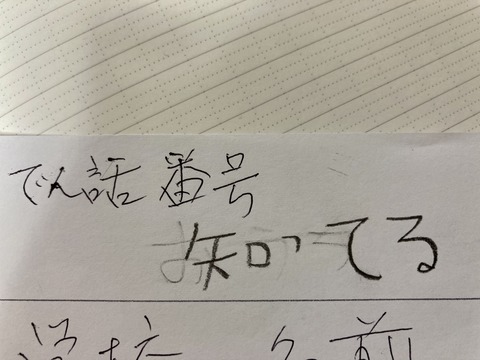 でん話番号
知ってる
学校 名前